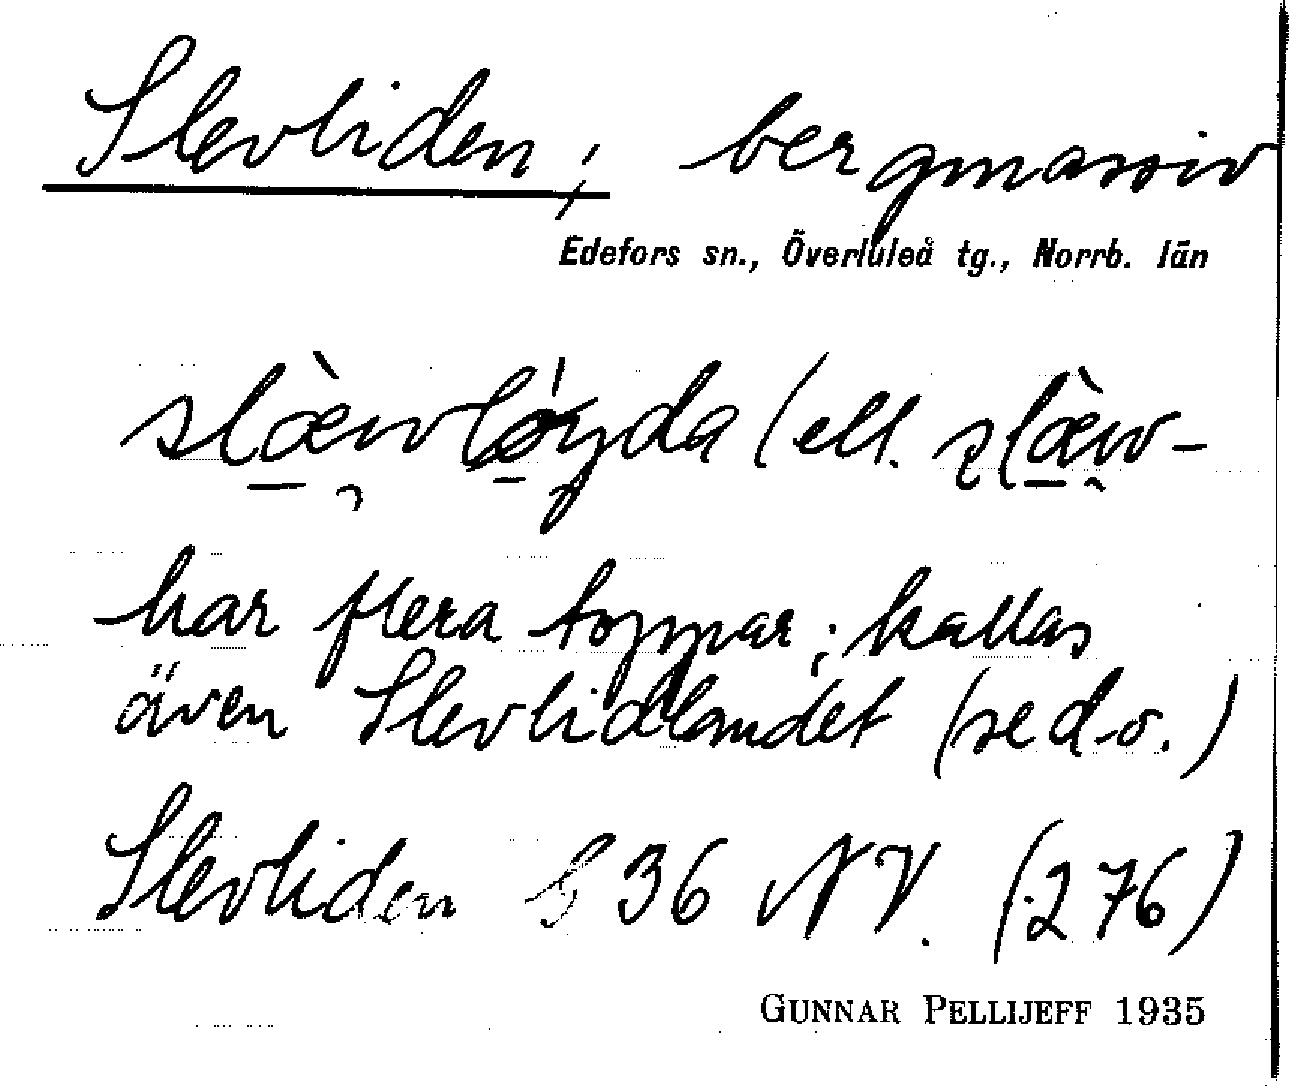 Slevliden, bergmassiv
Edefors sn., Överluleå tg., Norrb. län
slæ̀wløyda (ell. slæ̀w-
har flera toppar; kallas
även Slevlidlandet (se d.o.)
Slevliden 36 NV. (276)
GUNNAR PELLIJEFF 1935